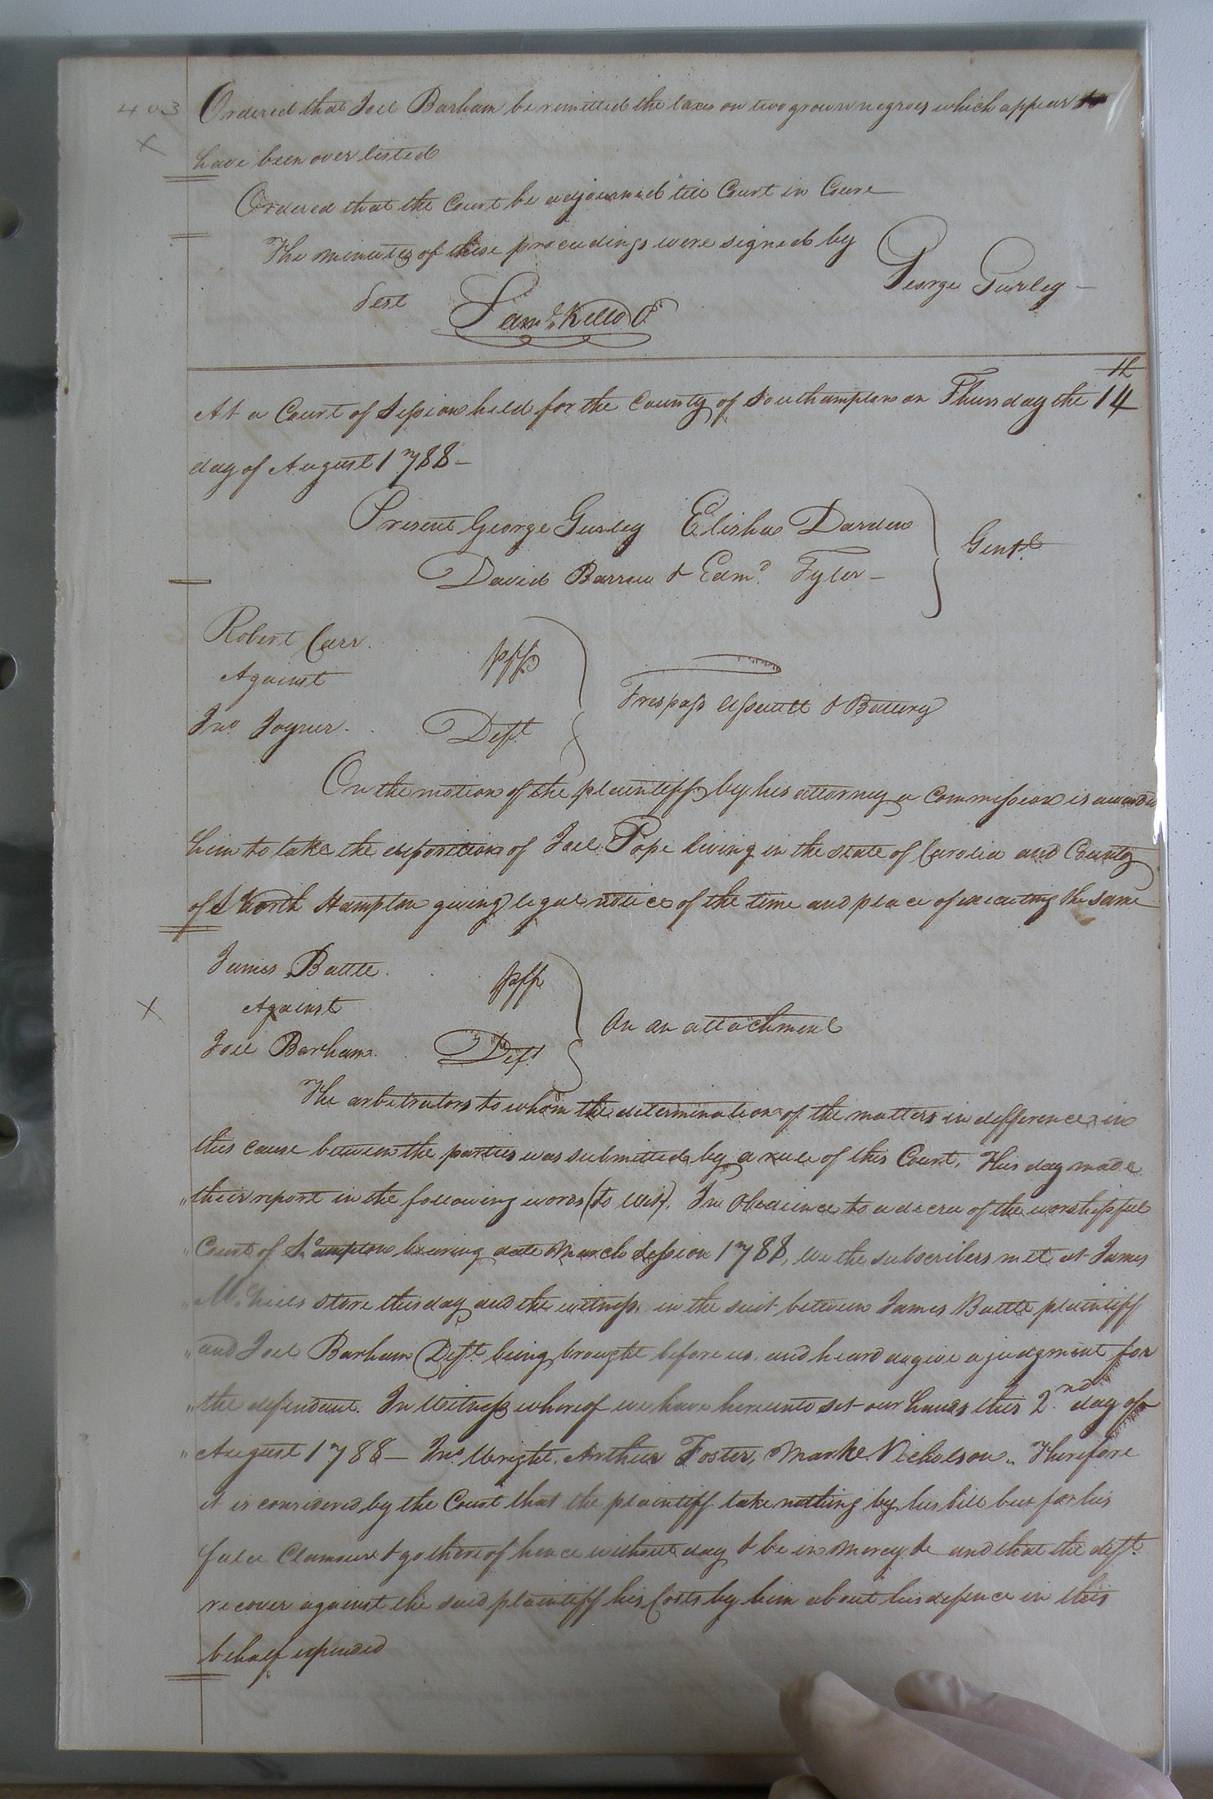 403
Ordered that Joel Barham be remitted the taxes on two grown negroes which appear to
have been over listed
Ordered that the Court be adjourned till Court in Course
The minutes of these proceedings were signed by
George Gurley
Test
Saml. Kello Cl
At a Court of Session held for the County of Southampton on Thursday the 14th
day of August 1788
Present George Gurley Elisha Darden
David Barrow & Edmd. Tyler
Gent.
Robert Carr
Against
Jno. Joyner
plff
Deft.
Trespass Assault & Battery
On the motion of the plaintiff by his attorney a Commission is awarded
him to take the deposition of Joel Pope living in the state of Carolia and County
of North Hampton giving legal notice of the time and place of executing the same
James Battle
Against
Joel Barham
plff
Deft.
On an attachment
The arbitrators to whom the determination of the matters in difference in
this cause between the parties was submitted by a rule of this Court, This day made
" their report in the following words (to wit). In Obedience to a decree of the worshipful
" Court of So.ampton bearing date March Session 1788, we the subscribers met at James
" store this day and the witness in the suit between James Battle plaintiff
" and Joel Barham Deft. being brought before us and heard we give a judgment for
" the defendant. In Witness whereof we have hereunto set our hands this 2nd. day of
" August 1788 — Jno. Wright, Arthur Foster, Marke Nicholson " Therefore
it is considered by the Court that the plaintiff take nothing by his bill but for his
false Clamour & go thereof hence without day & be in mercy &c and that the deft.
recover against the said plaintiff his Costs by him about his defence in this
behalf expended